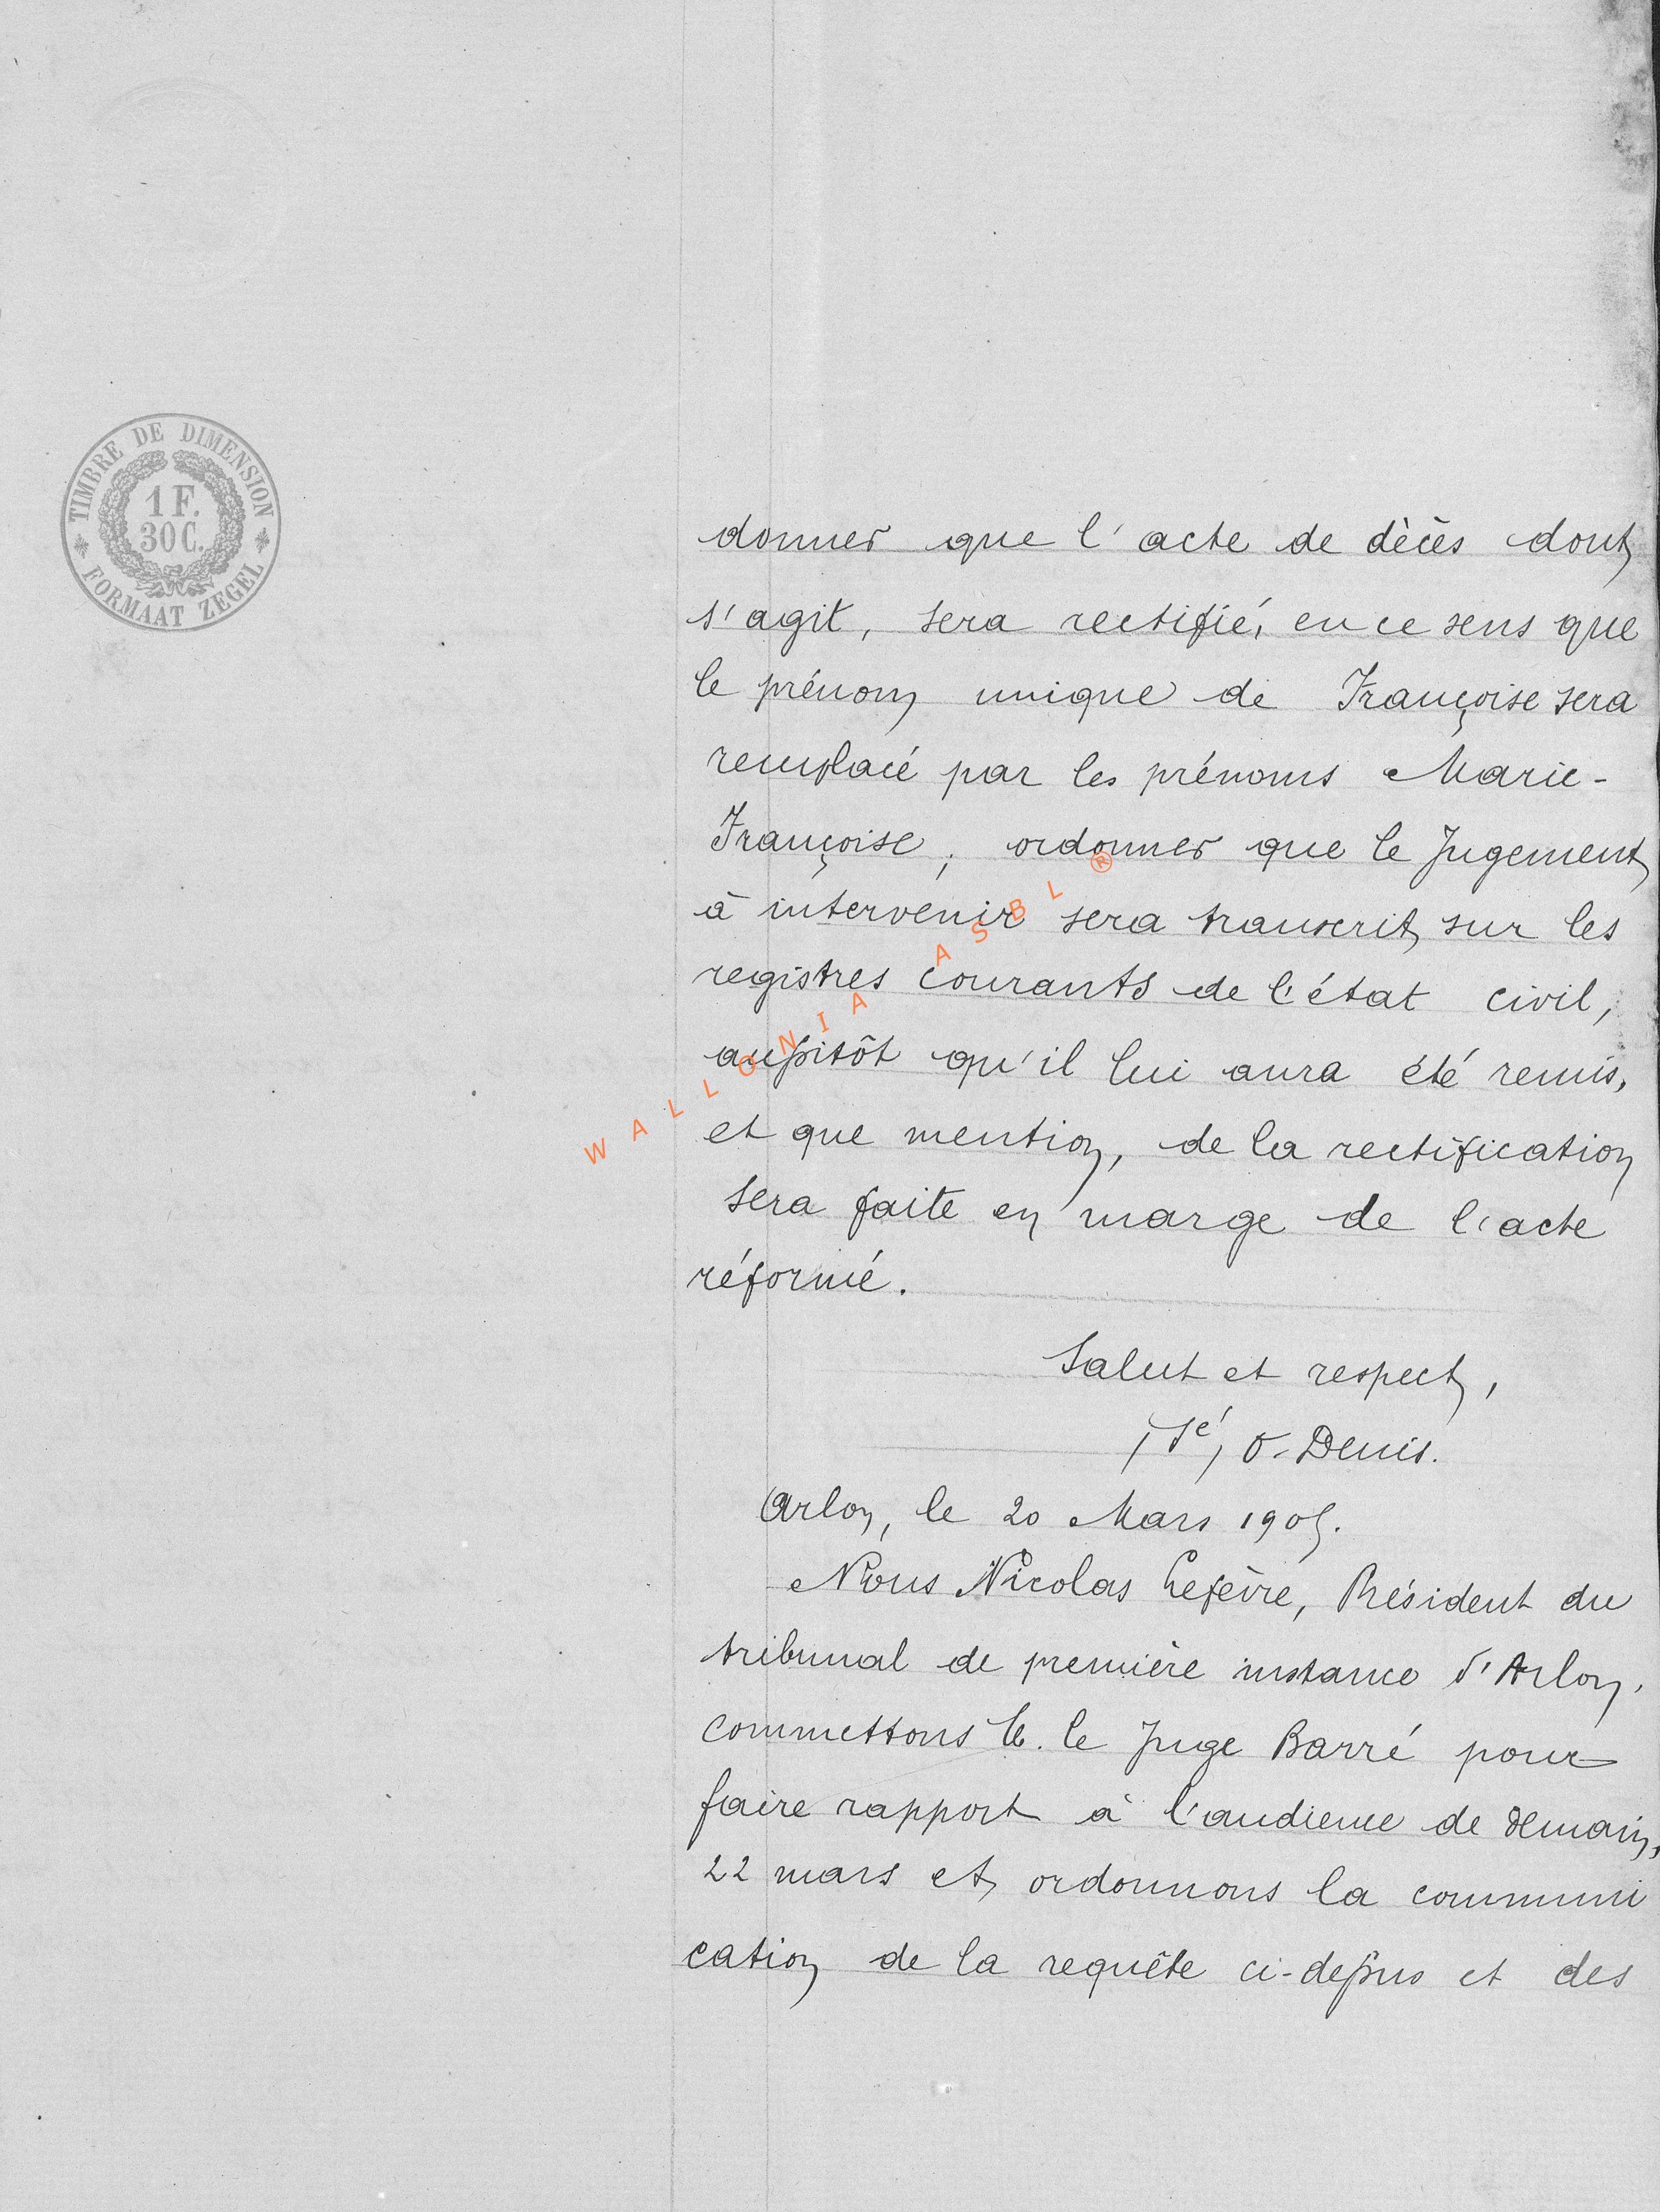 TIMBRE DE DIMENSION
1 F.
30 C.
FORMAAT ZEGEL
donner que l'acte de décès dont
s'agit, sera rectifié, en ce sens que
le prénom unique de Françoise sera
remplacé par les prénoms Marie-
Françoise; ordonner que le Jugement
à intervenir sera transcrit sur les
registres courants de l'état civil,
aussitôt qu'il lui aura été remis,
et que mention, de la rectification
sera faite en marge de l'acte
réformé.
Salut et respect,
(Sé) O. Denis.
Arlon, le 20 Mars 1905.
Nous Nicolas Lefèvre, Président du
tribunal de première instance d'Arlon,
commettons M. le Juge Barré pour
faire rapport à l'audience de demain,
22 mars et ordonnons la communi
cation de la requête ci-dessus et des
WALLONIA ASBL ®